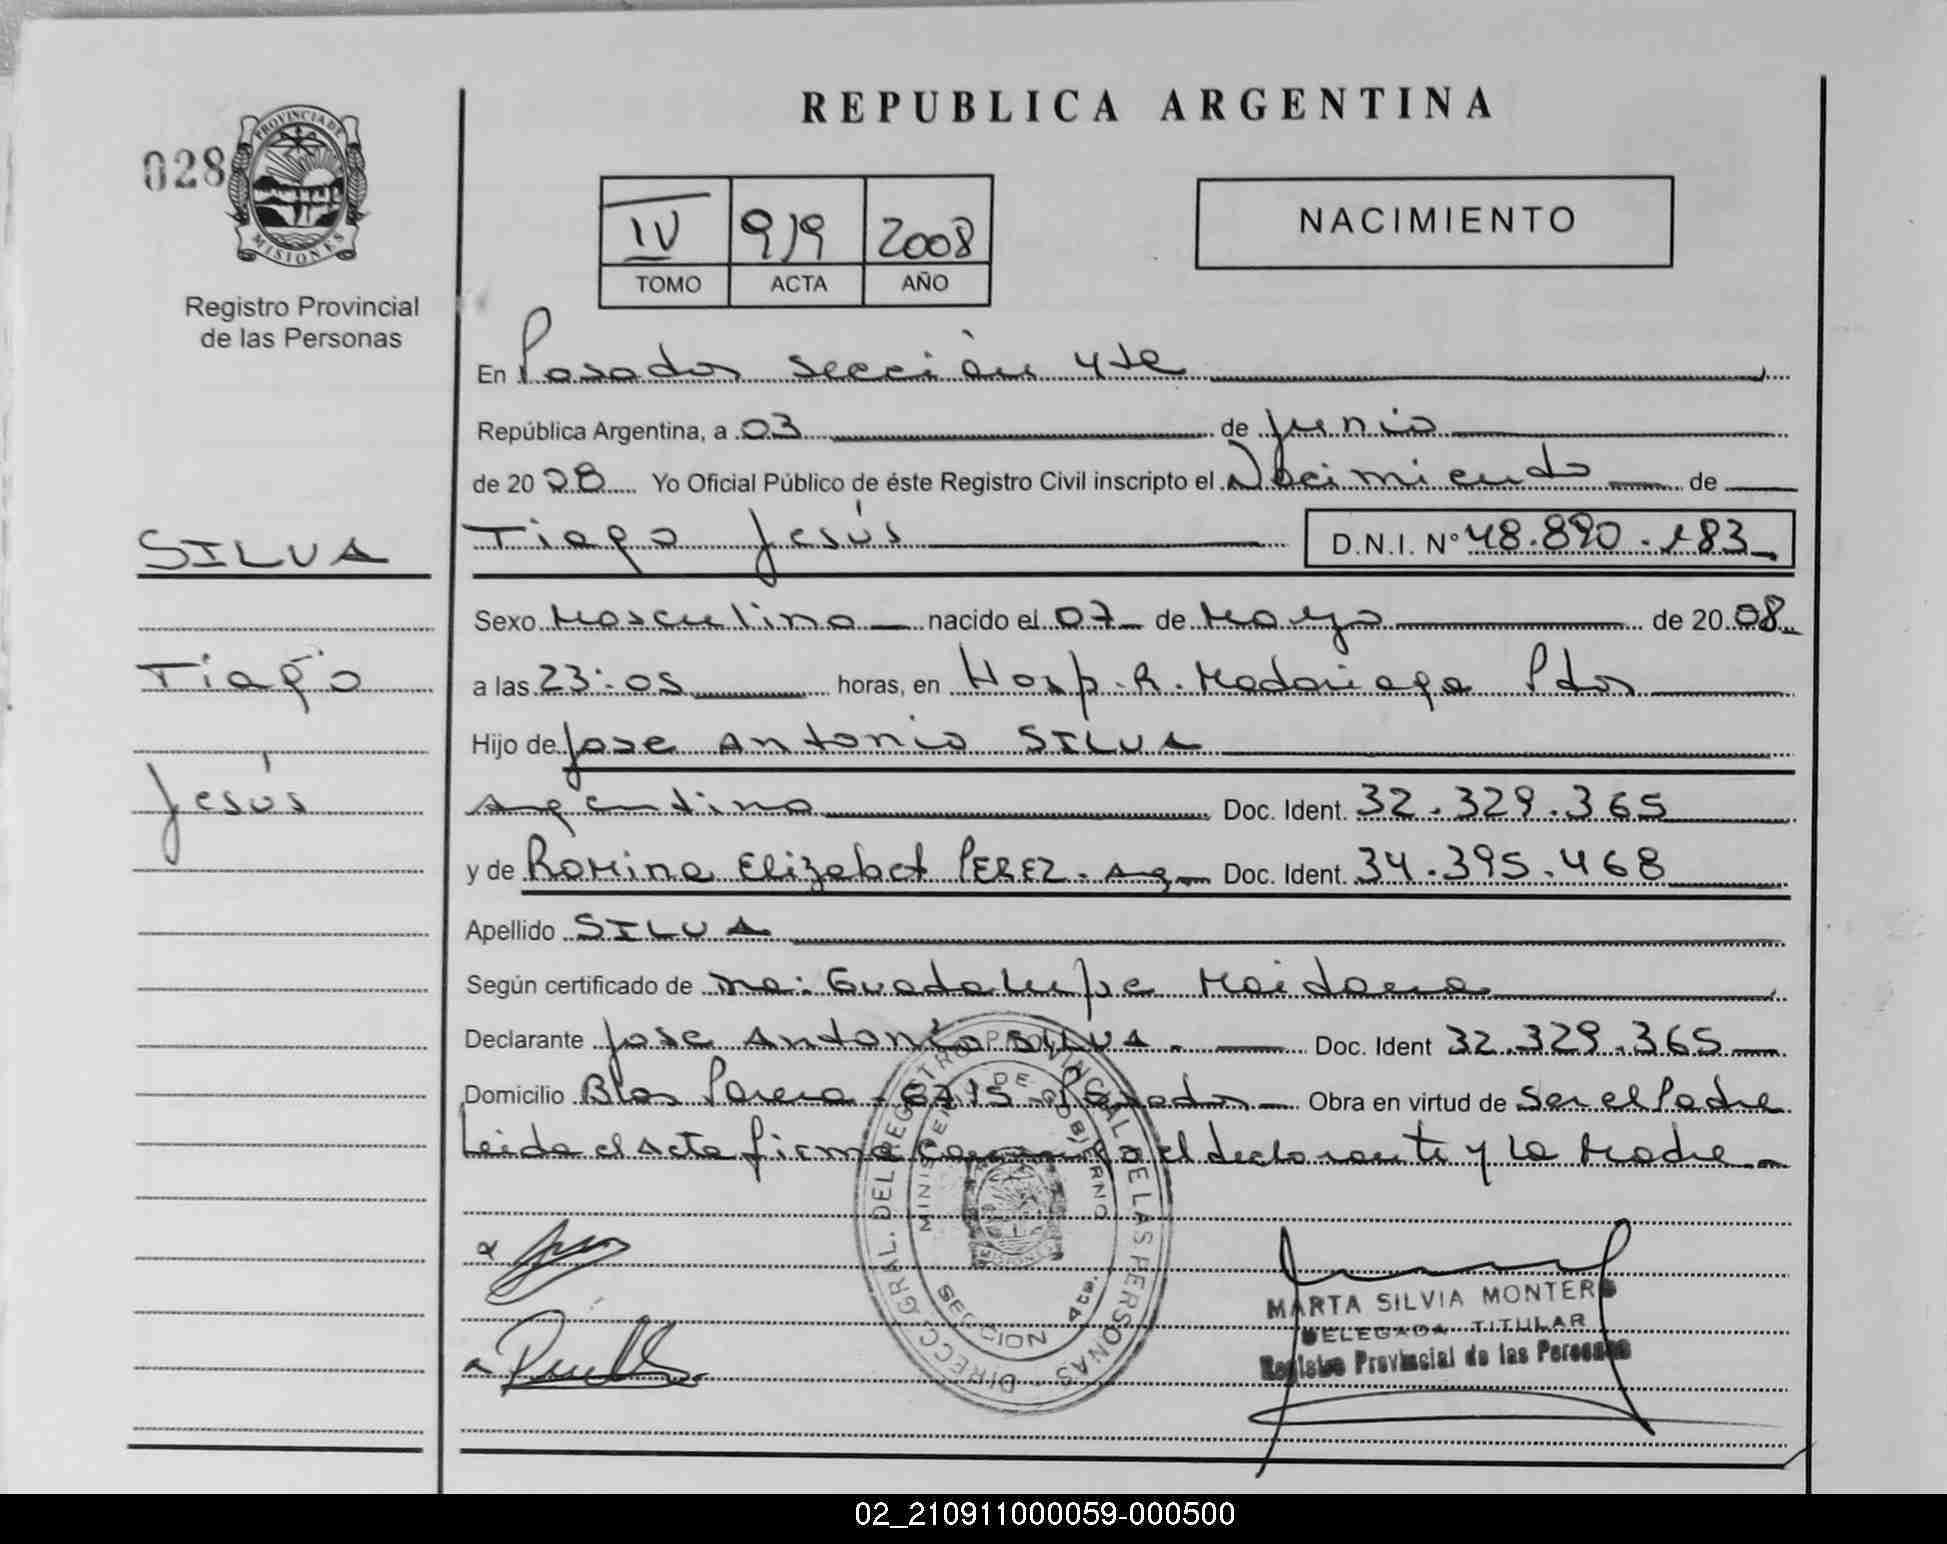 REPUBLICA ARGENTINA
028
PROVINCIA DE MISIONES
Registro Provincial
de las Personas
IV 919 2008
TOMO ACTA AÑO
NACIMIENTO
En Posadas sección 4ta
República Argentina, a 03 de Junio
de 2008 Yo Oficial Público de éste Registro Civil inscripto el Nacimiento de
SILVA
Tiago Jesús D.N.I. N° 48.890.183
Sexo Masculino nacido el 07 de Mayo de 2008
Tiago
a las 23:05 horas, en Hosp. R. Madariaga Pdas
Hijo de Jose Antonio SILVA
Jesús
Argentino Doc. Ident. 32.329.365
y de Romina Elizabet PEREZ. Arg Doc. Ident. 34.395.468
Apellido SILVA
Según certificado de Ma: Guadalupe Maidana
Declarante Jose Antonio SILVA. Doc. Ident 32.329.365
Domicilio Blas Parera - 6715 - Posadas Obra en virtud de Ser el Padre
Leida el Acta firma conmigo el declarante y la Madre
DIRECC. GRAL. DEL REGISTRO PROVINCIAL DE LAS PERSONAS
MINISTERIO DE GOBIERNO
SECCION 4ta.
MARTA SILVIA MONTERO
DELEGADA TITULAR
Registro Provincial de las Personas
02_210911000059-000500